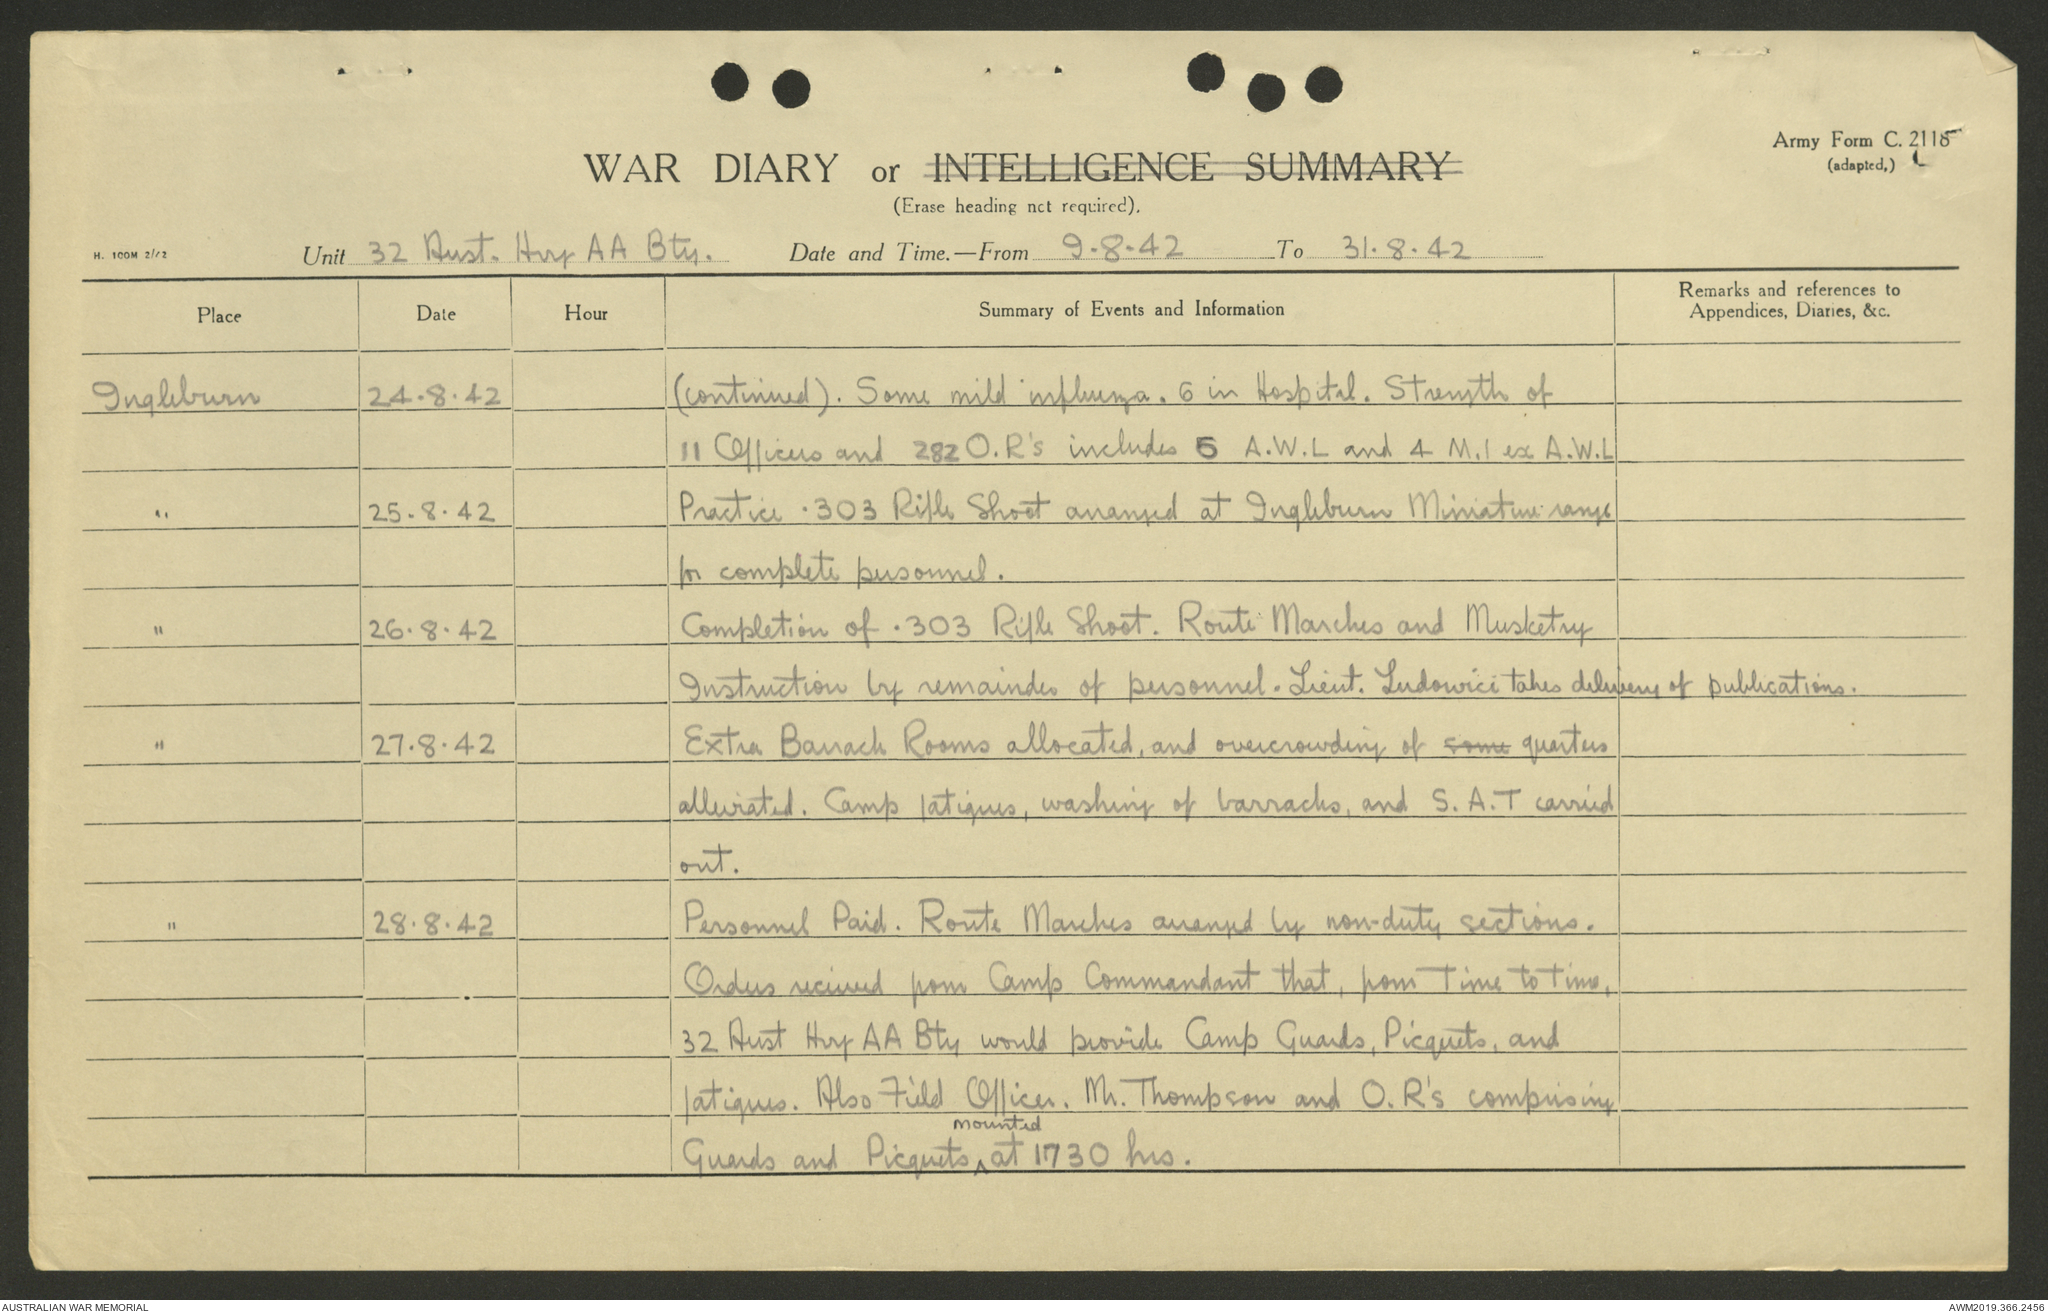 Army Form C. 2118
(adapted,)
WAR DIARY or INTELLIGENCE SUMMARY
(Erase heading not required).
H. 100M 2/42
Unit 32 Aust. Hvy AA Bty. Date and Time.—From 9.8.42 To 31.8.42
Place Date Hour Summary of Events and Information Remarks and references to
Appendices, Diaries, &c.
Ingleburn 24.8.42 (continued). Some mild influenza. 6 in Hospital. Strength of
11 Officers and 282 O.R's includes 5 A.W.L and 4 M.I ex A.W.L
" 25.8.42 Practice .303 Rifle Shoot arranged at Ingleburn Miniature range
for complete personnel.
" 26.8.42 Completion of .303 Rifle Shoot. Route Marches and Musketry
Instruction by remainder of personnel. Lieut. Ludowici takes delivery of publications.
" 27.8.42 Extra Barrack Rooms allocated, and overcrowding of some quarters
alleviated. Camp fatigues, washing of barracks, and S.A.T carried
out.
" 28.8.42 Personnel Paid. Route Marches arranged by non-duty sections.
Orders received from Camp Commandant that, from Time to Time,
32 Aust Hvy AA Bty would provide Camp Guards, Picquets, and
fatigues. Also Field Officer. Mr. Thompson and O.R's comprising
mounted
Guards and Picquets at 1730 hrs.
AUSTRALIAN WAR MEMORIAL
AWM2019.366.2456